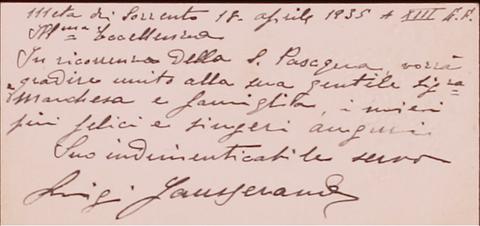 Meta di Sorrento 18. aprile 1935 + XIII E.F.
Ill.ma Eccellenza
In ricorrenza della S. Pasqua, vorrà
gradire unito alla sua gentile Sig.ra
Marchesa e famiglia, i miei
più felici e singeri auguri
Suo indimenticabile servo
Luigi